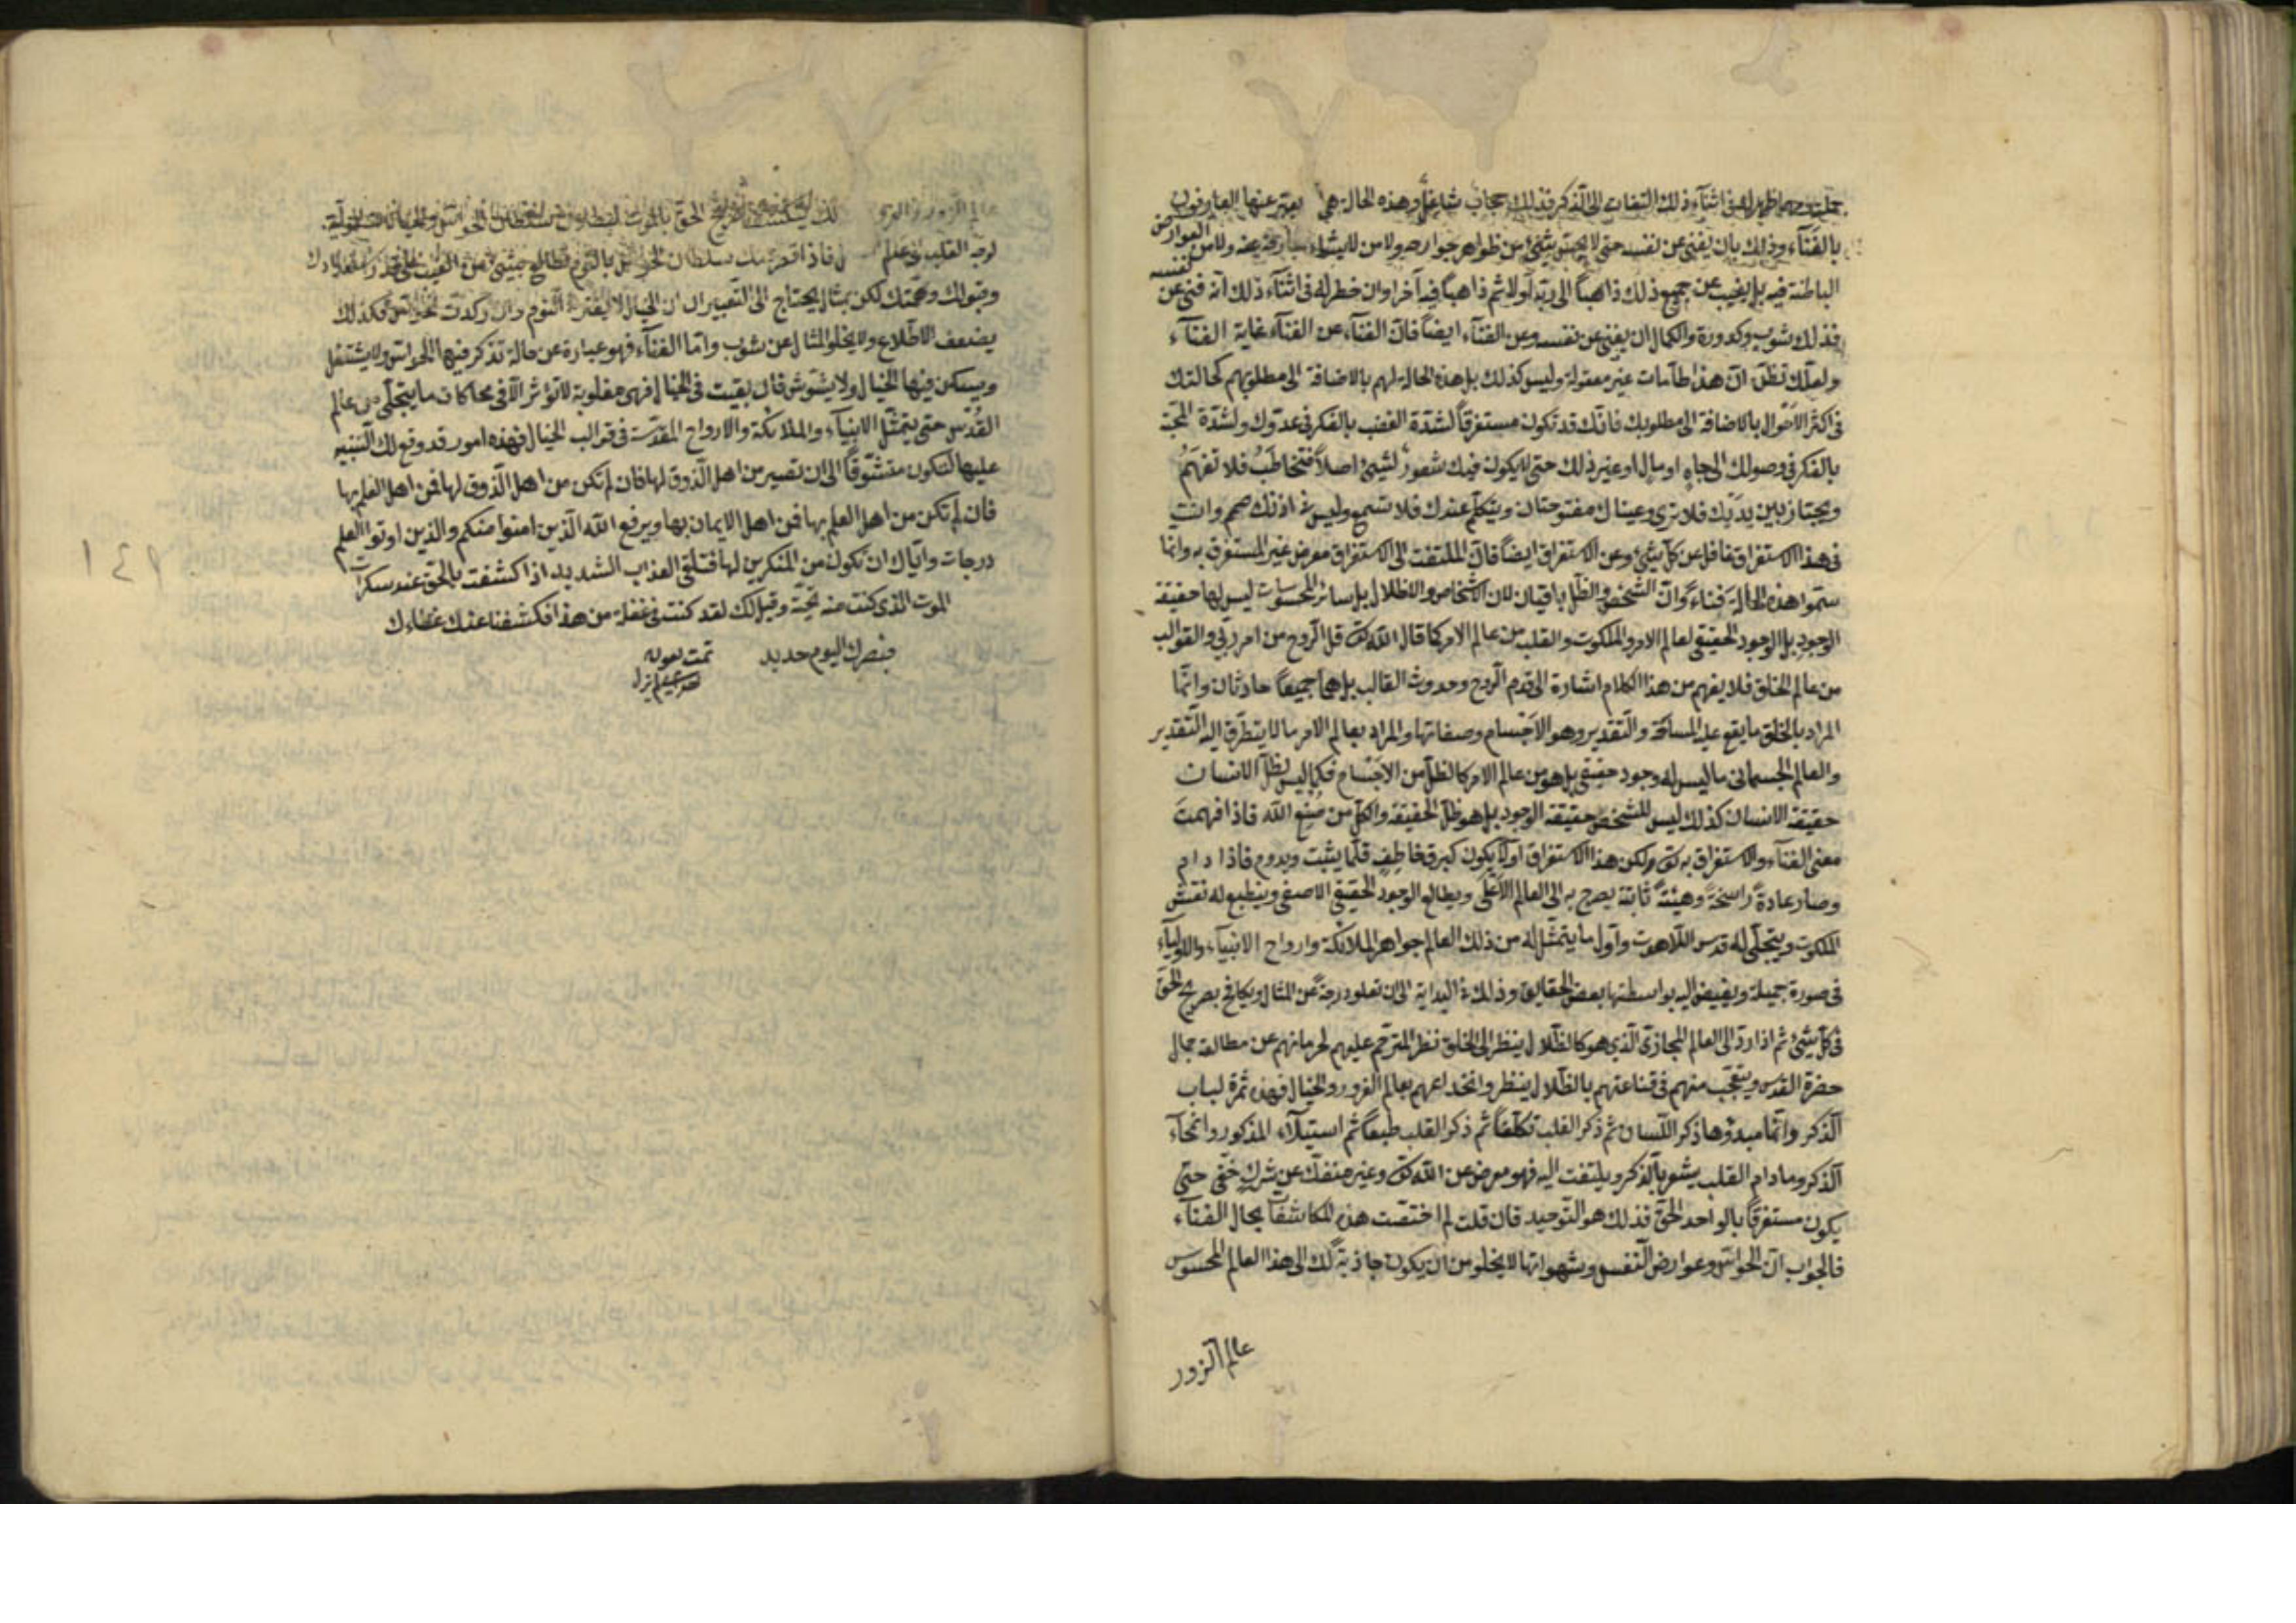 في اثنآء ذلك التفات الى الذكر فذلك حجاب شاغل وهذه الحال هي يعبّر عنها العارفون
بالفنآء وذلك بان يفنى عن نفسه حتى لا يحسّ بشئ من ظواهر جوارحه ولا من الاشياء الخارجة عنه ولا من العوارض
الباطنة فيه بل يغيب عن جميع ذلك ذاهباً الى ربّه اولا ثم ذاهباً فيه آخرا وان خطر له في اثنآء ذلك انه فنى عن نفسه
فذلك شوب وكدورة والكمال ان يفنى عن نفسه وعن الفنآء ايضاً فانّ الفنآء عن الفنآء غاية الفنآء
ولعلّك تظنّ انّ هذا طآمات غير معقولة وليس كذلك بل هذه الحالة لهم بالاضافة الى مطلوبهم كحالتك
في اكثر الاحوال بالاضافة الى مطلوبك فانّك قد تكون مستغرقاً لشدّة الغضب بالفكر في عدوّك ولشدّة المحبّة
بالفكر في وصولك الى جاهٍ او مالٍ او غير ذلك حتى لا يكون فيك شعورٌ لشئ اصلاً فتخاطَبُ فلا تفهَمُ
ويجتاز بين يديك فلا ترى وعيناك مفتوحتان ويتكلّم عندك فلا تسمع وليس في اذنك صمم وانت
في هذا الاستغراق غافل عن كلّ شئ وعن الاستغراق ايضاً فانّ الملتفت الى الاستغراق معرض غير المستغرق به وانما
سمّوا هذه الحالة فناء وانّ الشخص والظلّ باقيان لان الاشخاص والاظلال بل سائر المحسوسات ليس لها حقيقة
الوجود بل الوجود الحقيقي لعالم الامر والملكوت والقلب من عالم الامر كما قال الله تع قل الروح من امر ربّي والقوالب
من عالم الخلق فلا يفهم من هذا الكلام اشارة الى قدم الروح وحدوث القالب بل هما جميعاً حادثان وانّما
المراد بالخلق ما يقع عليه المساحة والتقدير وهو الاجسام وصفاتها والمراد بعالم الامر ما لا يتطرّق اليه التقدير
والعالم الجسماني ما ليس له وجود حقيقي بل هو من عالم الامر كالظلّ من الاجسام فكما ليس لظلّ الانسان
حقيقة الانسان كذلك ليس للشخص حقيقة الوجود بل هو ظلّ الحقيقة والكلّ من صُنع الله فاذا فهمتَ
معنى الفنآء والاستغراق به تع ولكن هذا الاستغراق اولاً يكون كبرق خاطف قلّما يثبت ويدوم فاذا دام
وصار عادةً راسخةً وهيئةً ثابتة يعرج به الى العالم الاَعلى ويطالع الوجود الحقيقي الاصفى وينطبع له نقش
الملكوت ويتجلّى له قدس اللاهوت واول ما يتمثّل له من ذلك العالم جواهر الملائكة وارواح الانبيآء والاوليآء
في صورة جميلة ويفيض اليه بواسطتها بعض الحقايق وذلك في البداية الى ان تعلو درجةً عن المثال ويكافح بصريح الحقّ
في كلّ شئ ثم اذا ردّ الى العالم المجازيّ الّذي هو كالظلال ينظر الى الخلق نظر المترحّم عليهم لحرمانهم عن مطالعة جمال
حضرة القدس ويتعجّب منهم في قناعتهم بالظلال ينظر وانخداعهم بعالم الغرور والخيال فهذه ثمرة لباب
الذكر وانّما مبدؤها ذكر اللّسان ثم ذكر القلب تكلّفاً ثم ذكر القلب طبعاً ثم استيلآء المذكور وانمحآء
الذكر وما دام القلب يشعر بالذكر ويلتفت اليه فهو معرض عن الله تع وغير منفكّ عن شركٍ خفيّ حتى
يكون مستغرقاً بالواحد الحقّ فذلك هو التوحيد فان قلت لم اختصّت هذه المكاشفات بحال الفنآء
فالجواب انّ الحواسّ وعوارض النفس وشهواتها لا يخلو من ان يكون جاذبةً لك الى هذا العالم المحسوس
عالم الزور
عالم الزور
فاذا بالنوم
وهمّتك لكن بمثال يحتاج الى التعبير لان الخيال لا يفتر في النوم وان ركدت الحواسّ فكذلك
يضعف الاطّلاع ولا يخلو المثال عن شوب وامّا الفنآء فهو عبارة عن حالة تركد فيها الحواسّ ولا يشتغل
ويسكن فيها الخيال ولا يشوّش فان بقيت في الخيال فهي مغلوبة لا تؤثر الا في محاكات ما يتجلّى من عالم
القُدس حتى يتمثّل الانبيآء والملائكة والارواح المقدّسة في قوالب الخيال فهذه امور قد وقع لك التنبيه
عليها لتكون متشوّقاً الى ان تصير من اهل الذوق لها فان لم تكن من اهل الذوق لها فمن اهل العلم بها
فان لم تكن من اهل العلم بها فمن اهل الايمان بها ويرفع الله الذين امنوا منكم والذين اوتوا العلم
درجات وايّاك ان تكون من المنكرين لها فتلقى العذاب الشديد اذا كشفت بالحقّ عند سكرات
الموت الذي كنت منه تحيد وقيل لك لقد كنت في غفلة من هذا فكشفنا عنك غطاءك
فبصرك اليوم حديد تمت بعون
١٤٩